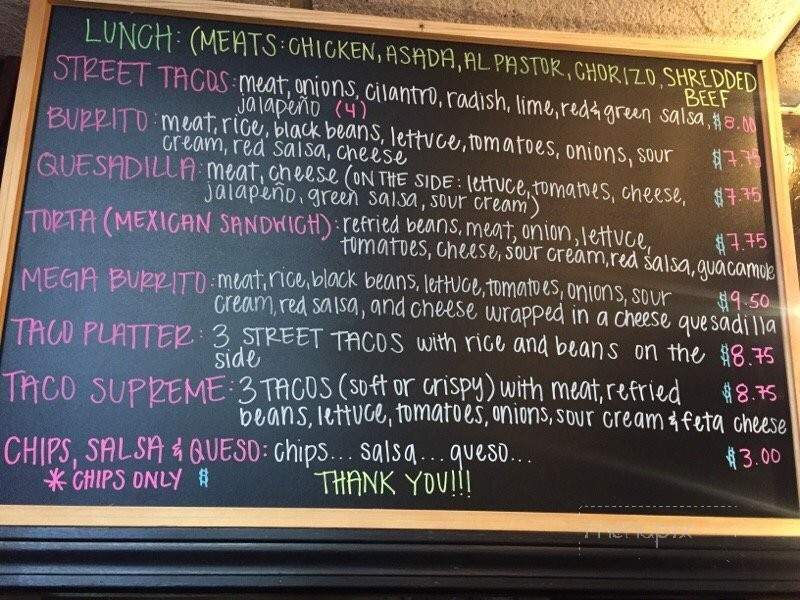 LUNCH: (MEATS: CHICKEN, ASADA, AL PASTOR, CHORIZO, SHREDDED BEEF
STREET TACOS: meat, onions, cilantro, radish, lime, red & green salsa, $8.00
jalapeño (4)
BURRITO: meat, rice, black beans, lettuce, tomatoes, onions, sour $7.75
cream, red salsa, cheese
QUESADILLA: meat, cheese (ON THE SIDE: lettuce, tomatoes, cheese, $7.75
jalapeño, green salsa, sour cream)
TORTA (MEXICAN SANDWICH): refried beans, meat, onion, lettuce, $7.75
tomatoes, cheese, sour cream, red salsa, guacamole
MEGA BURRITO: meat, rice, black beans, lettuce, tomatoes, onions, sour $9.50
cream, red salsa, and cheese wrapped in a cheese quesadilla
TACO PLATTER: 3 STREET TACOS with rice and beans on the $8.75
side
TACO SUPREME: 3 TACOS (soft or crispy) with meat, refried $8.75
beans, lettuce, tomatoes, onions, sour cream & feta cheese
CHIPS, SALSA & QUESO: chips... salsa... queso... $3.00
* CHIPS ONLY $
THANK YOU!!!